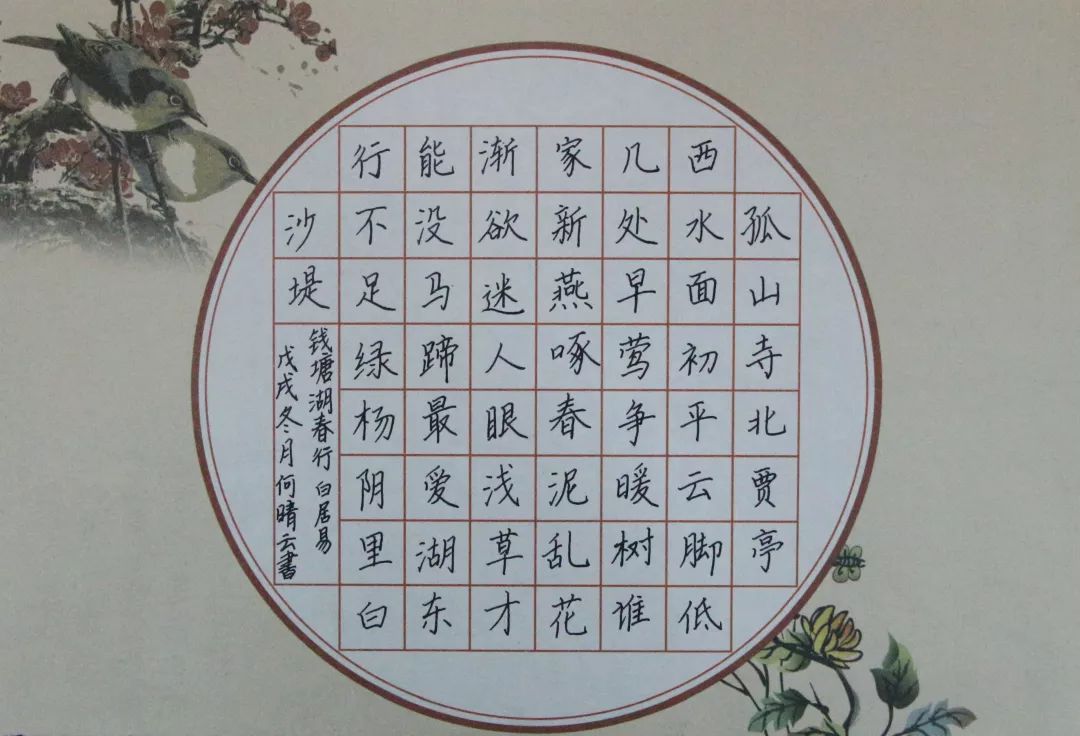 孤山寺北贾亭
西水面初平云脚低
几处早莺争暖树谁
家新燕啄春泥乱花
渐欲迷人眼浅草才
能没马蹄最爱湖东
行不足绿杨阴里白
沙堤
钱塘湖春行 白居易
戊戌冬月何晴云書